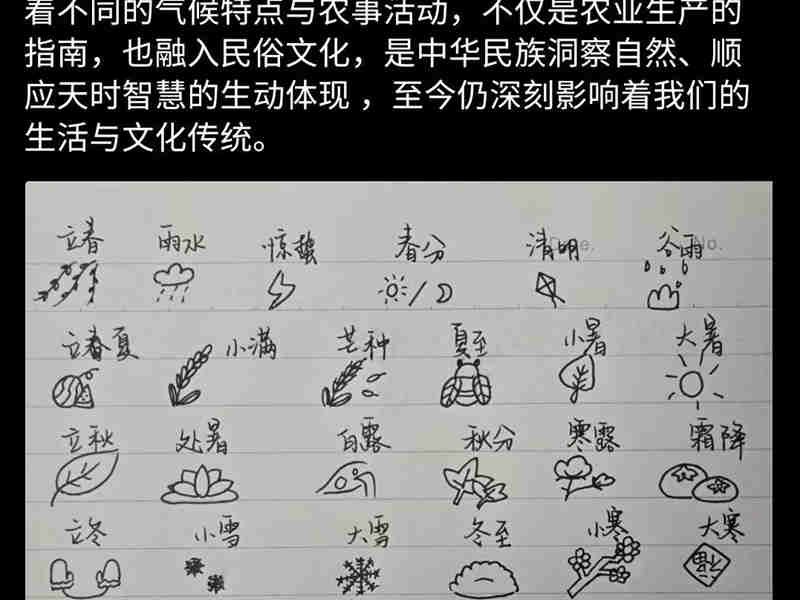 看不同的气候特点与农事活动，不仅是农业生产的
指南，也融入民俗文化，是中华民族洞察自然、顺
应天时智慧的生动体现 ，至今仍深刻影响着我们的
生活与文化传统。
立春 雨水 惊蛰 春分 清明 谷雨
No.
立春夏 小满 芒种 夏至 小暑 大暑
立秋 处暑 白露 秋分 寒露 霜降
立冬 小雪 大雪 冬至 小寒 大寒
福